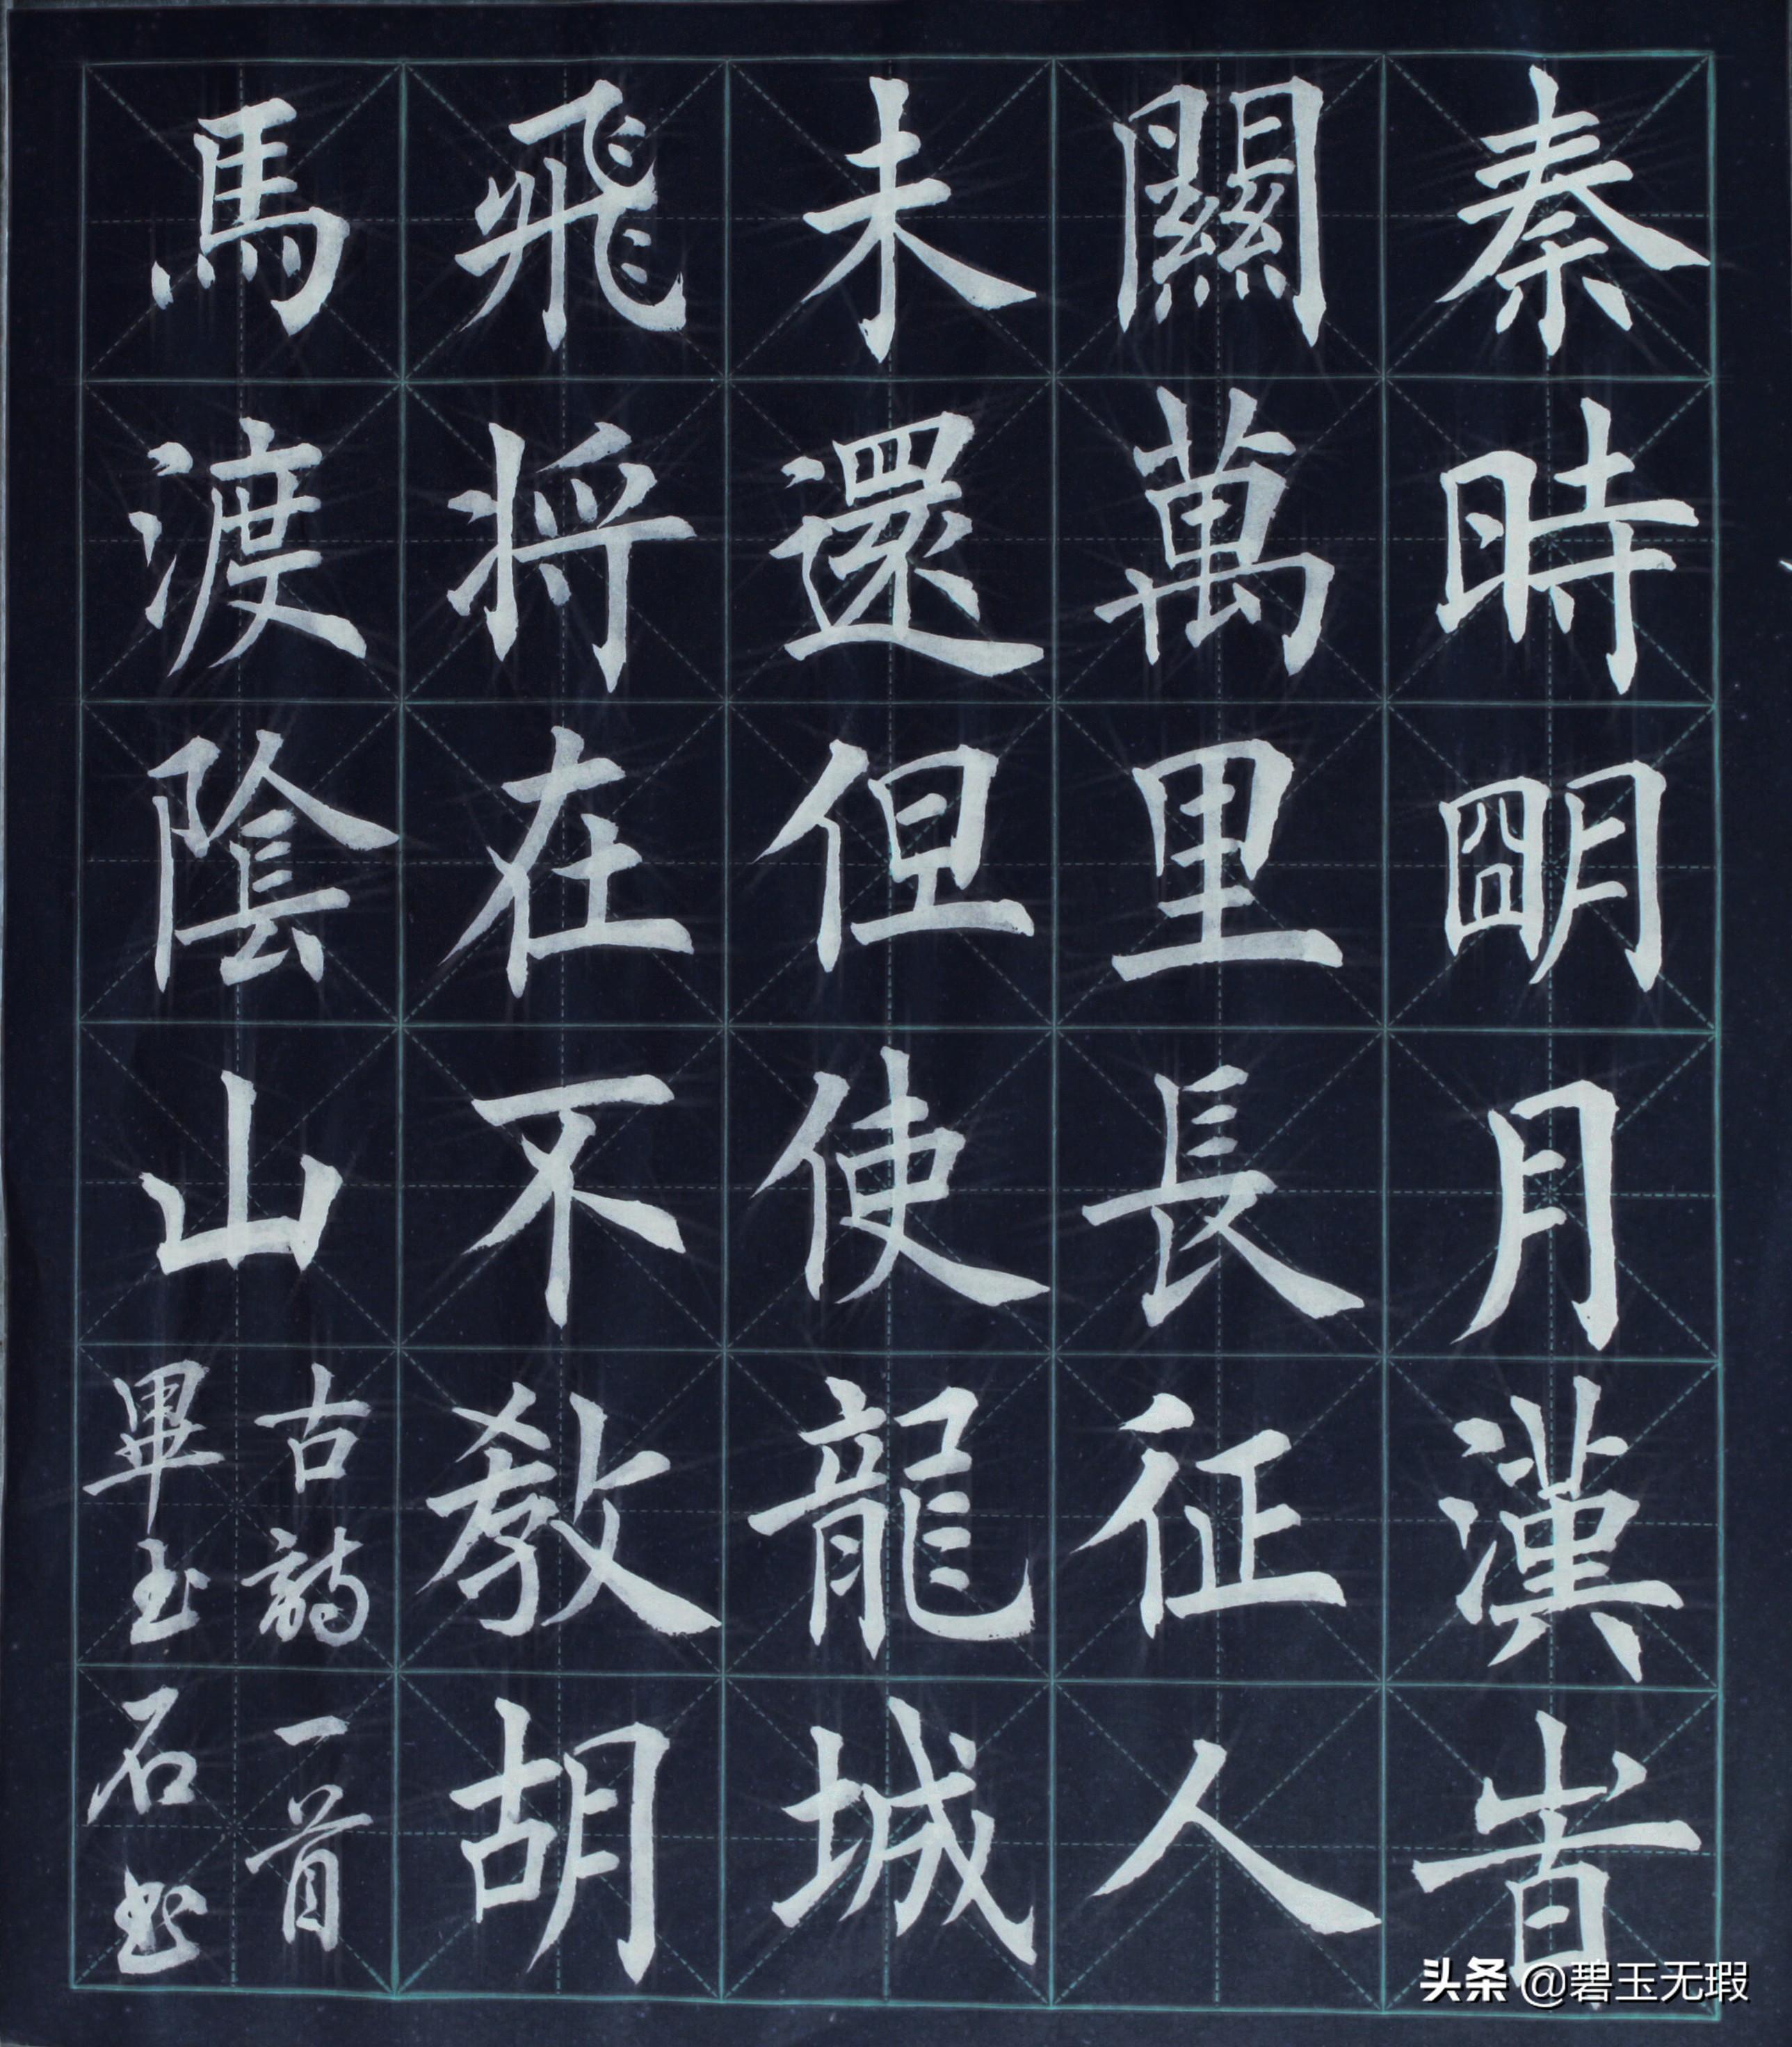 秦時朙月漢旹
關萬里長征人
未還但使龍城
飛将在不敎胡
馬渡陰山
古詩一首
畢玉石書
头条 @碧玉无瑕